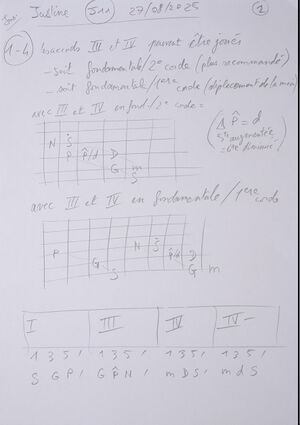 Justine J11 27/08/2025 2
1-4 accords III et IV peuvent être joués
- soit fondamental / 2e code (plus recommandé)
- soit fondamental / 1ere code (déplacement de la main)
avec III et IV en fond. / 2e code =
Δ P̂ = d
5te augmentée
= diminuée
N S
P P̂/d D
G m
S
avec III et IV en fondamentale / 1ere code
N S
P G P̂/d D
S G m
I III IV IV-
1 3 5 / 1 3 5 / 1 3 5 / 1 3 5 /
S G P / G P̂ N / m D S / m d S